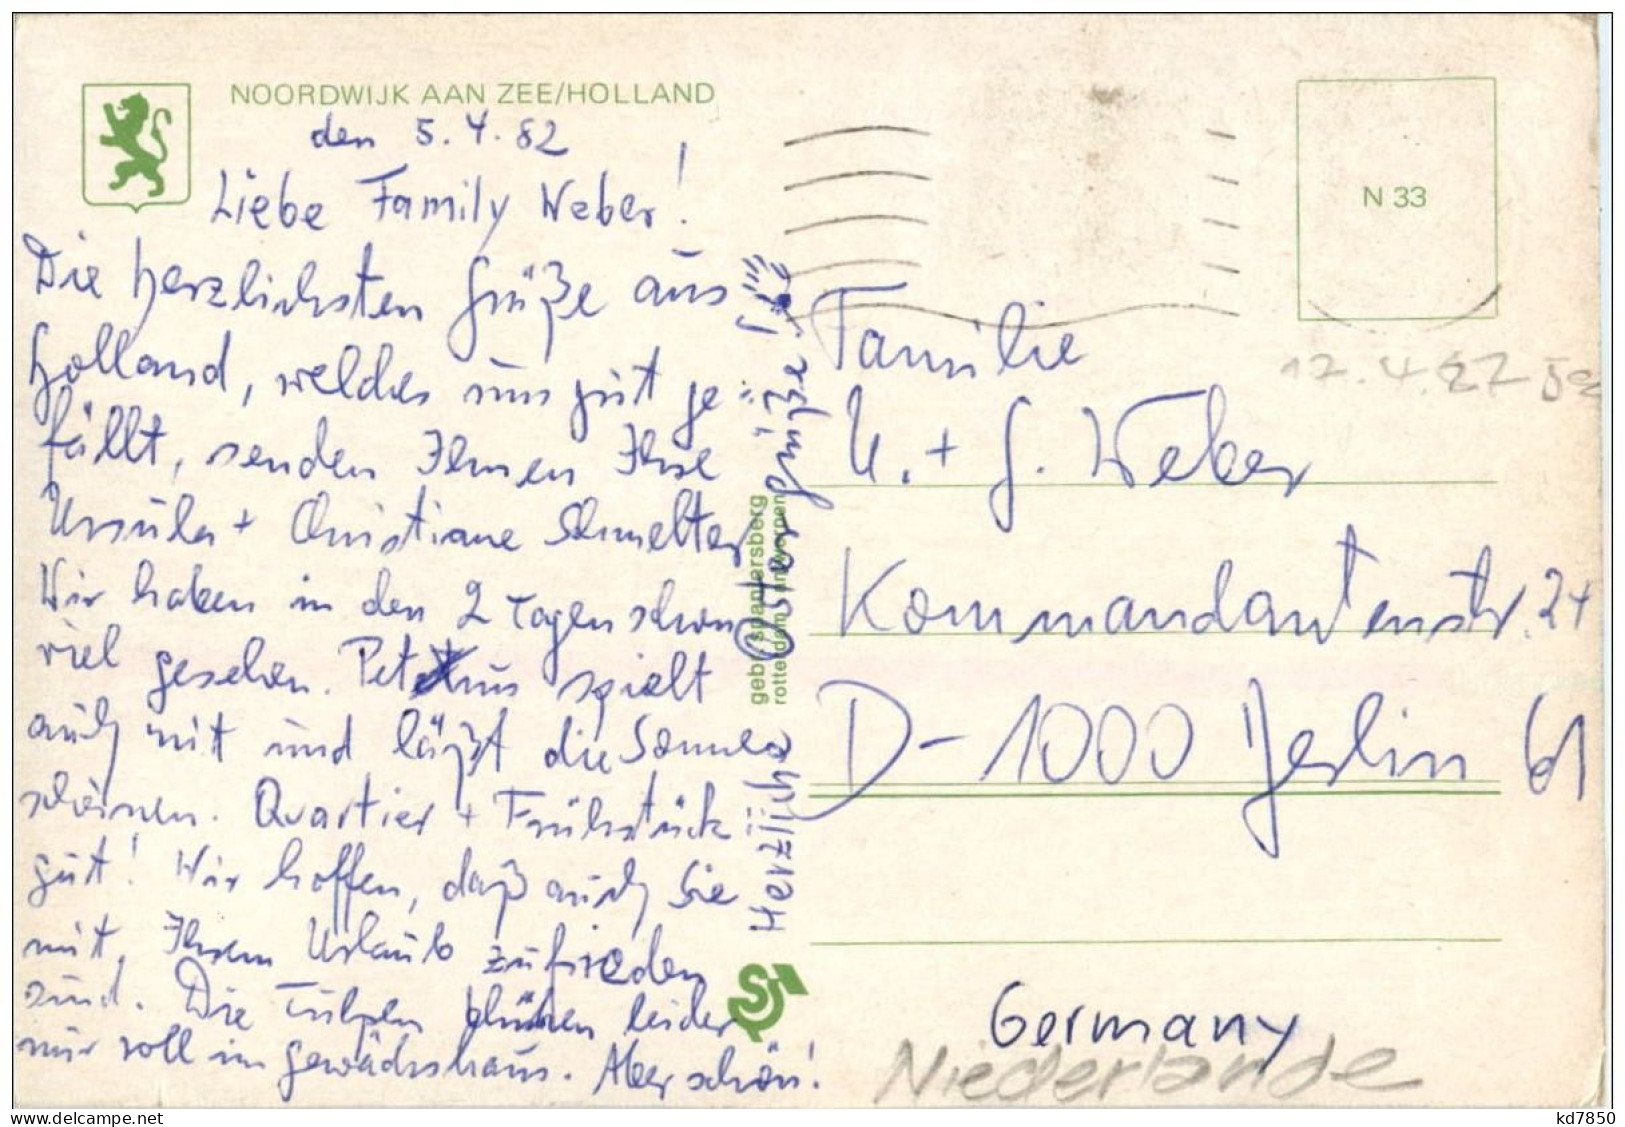 NOORDWIJK AAN ZEE/HOLLAND
den 5.4.82
Liebe Family Weber!
Die herzlichsten Grüße aus
Holland, welches uns gut ge-
fällt, senden Ihnen Ihre
Ursula + Christiane Schmelter
Wir haben in den 2 Tagen schon
viel gesehen. Petrus spielt
auch mit und läßt die Sonne
scheinen. Quartier + Frühstück
gut! Wir hoffen, daß auch Sie
mit Ihrem Urlaub zufrieden
sind. Die Tulpen blühen leider
nur voll im Gewächshaus. Aber schön!
Herzliche Ostergrüße!
gebr. spanjersberg
rotterdam antwerpen
N 33
Familie
U. + G. Weber
Kommandantenstr. 24
D-1000 Berlin 61
Germany
Niederlande
kd7850